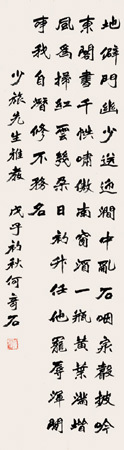 地僻門幽少送迎澗中亂石咽泉聲披吟
東閣書千帙嘯傲南窗酒一瓶黃葉滿堦
風為掃紅雲幾朵日初升任他寵辱渾閒
事我自潛修不務名
少旅先生雅教 戊子初秋何奇石